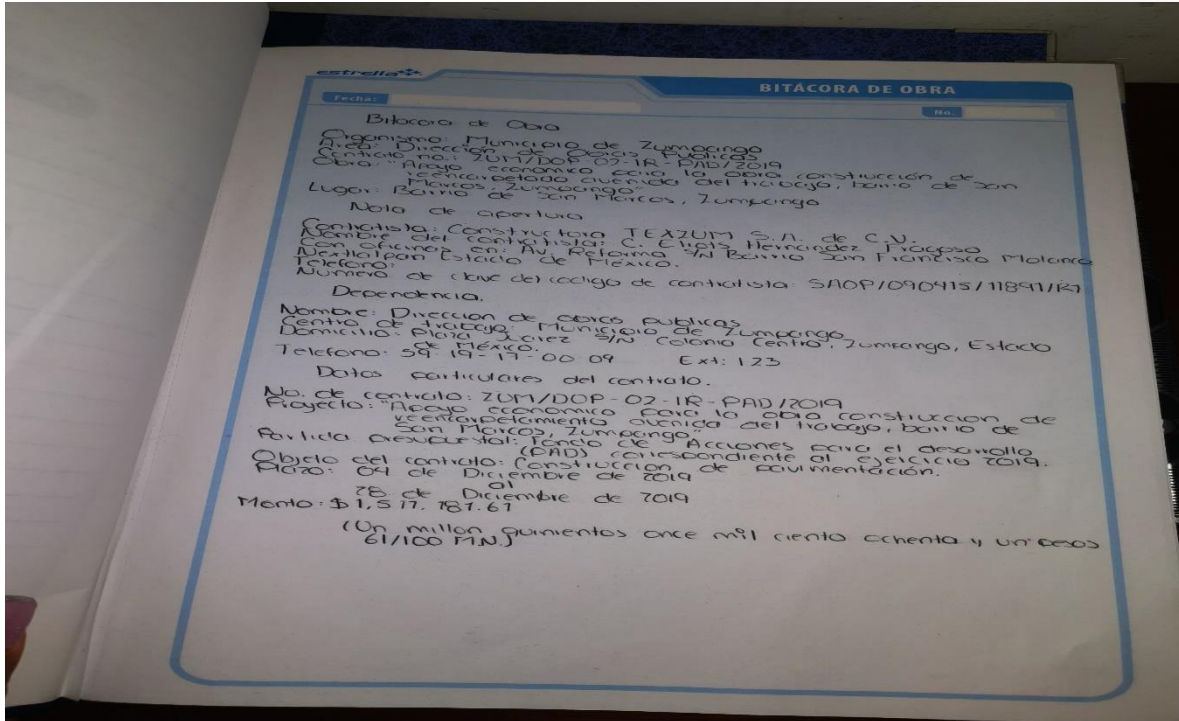 estrella
BITÁCORA DE OBRA
Fecha:
No.
Bitacora de Obra
Organismo: Municipio de Zumpango
Área: Dirección de Obras Publicas
Contrato no.: ZUM/DOP-02-IR-PAD/2019
Obra: "Apoyo economico para la obra construcción de
reencarpetado avenida del trabajo, barrio de San
Marcos, Zumpango"
Lugar: Barrio de San Marcos, Zumpango
Nota de apertura
Contratista: Constructora TEXZUM S.A. de C.V.
Nombre del contratista: C. Eliots Hernandez Fragoso
Con oficinas en: Av. Reforma S/N Barrio San Francisco Molonco
Nextlalpan Estado de México.
Telefono:
Número de clave del codigo de contratista: SAOP/090415/11891/R7
Dependencia.
Nombre: Direccion de obras publicas
Centro de trabajo: Municipio de Zumpango
Domicilio: Plaza Juarez S/N Colonia Centro, Zumpango, Estado
de México.
Telefono: 59-19-17-00 09 Ext: 123
Datos particulares del contrato.
No. de contrato: ZUM/DOP-02-IR-PAD/2019
Proyecto: "Apoyo economico para la obra construccion de
reencarpetamiento avenida del trabajo, barrio de
San Marcos, Zumpango"
Partida presupuestal: Fondo de Acciones para el desarrollo
(PAD) correspondiente al ejercicio 2019.
Objeto del contrato: Construccion de pavimentación.
Plazo: 04 de Diciembre de 2019
al
28 de Diciembre de 2019
Monto: $1,511,181.61
(Un millon quinientos once mil ciento ochenta y un pesos
61/100 M.N.)